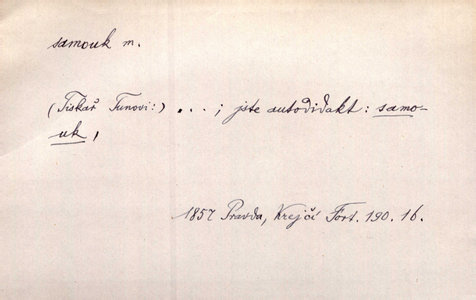 samouk m.
(Tiskař Tunovi:) . . . ; jste autodidakt: samo-
uk,
1857 Pravda, Krejčí Fort. 190. 16.